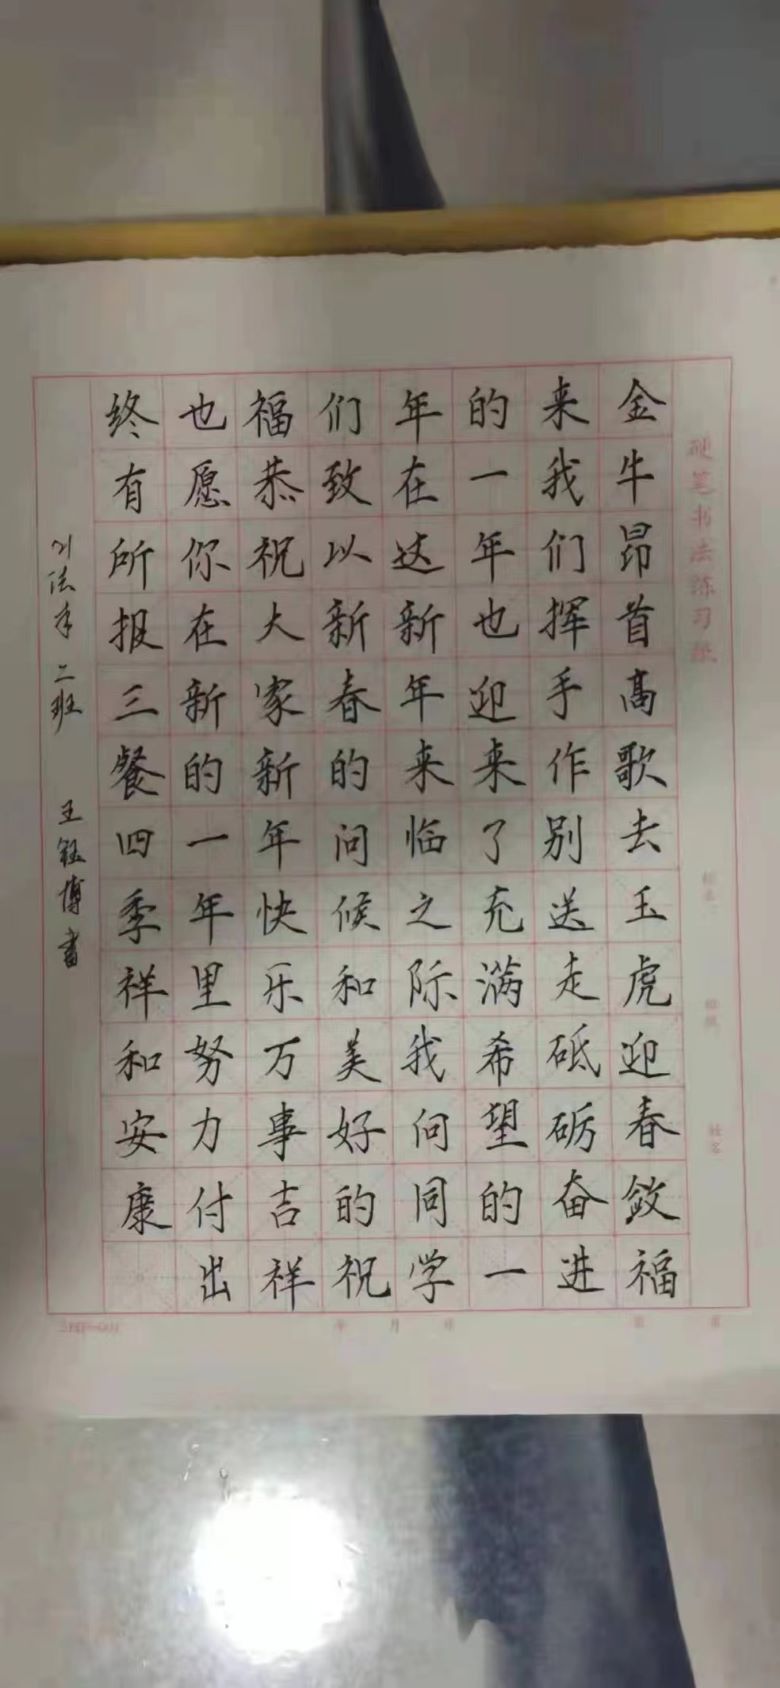 硬笔书法练习纸
金牛昂首高歌去玉虎迎春敛福
来我们挥手作别送走砥砺奋进
的一年也迎来了充满希望的一
年在这新年来临之际我向同学
们致以新春的问候和美好的祝
福恭祝大家新年快乐万事吉祥
也愿你在新的一年里努力付出
终有所报三餐四季祥和安康
21法本二班 王钰博书
年 月 日